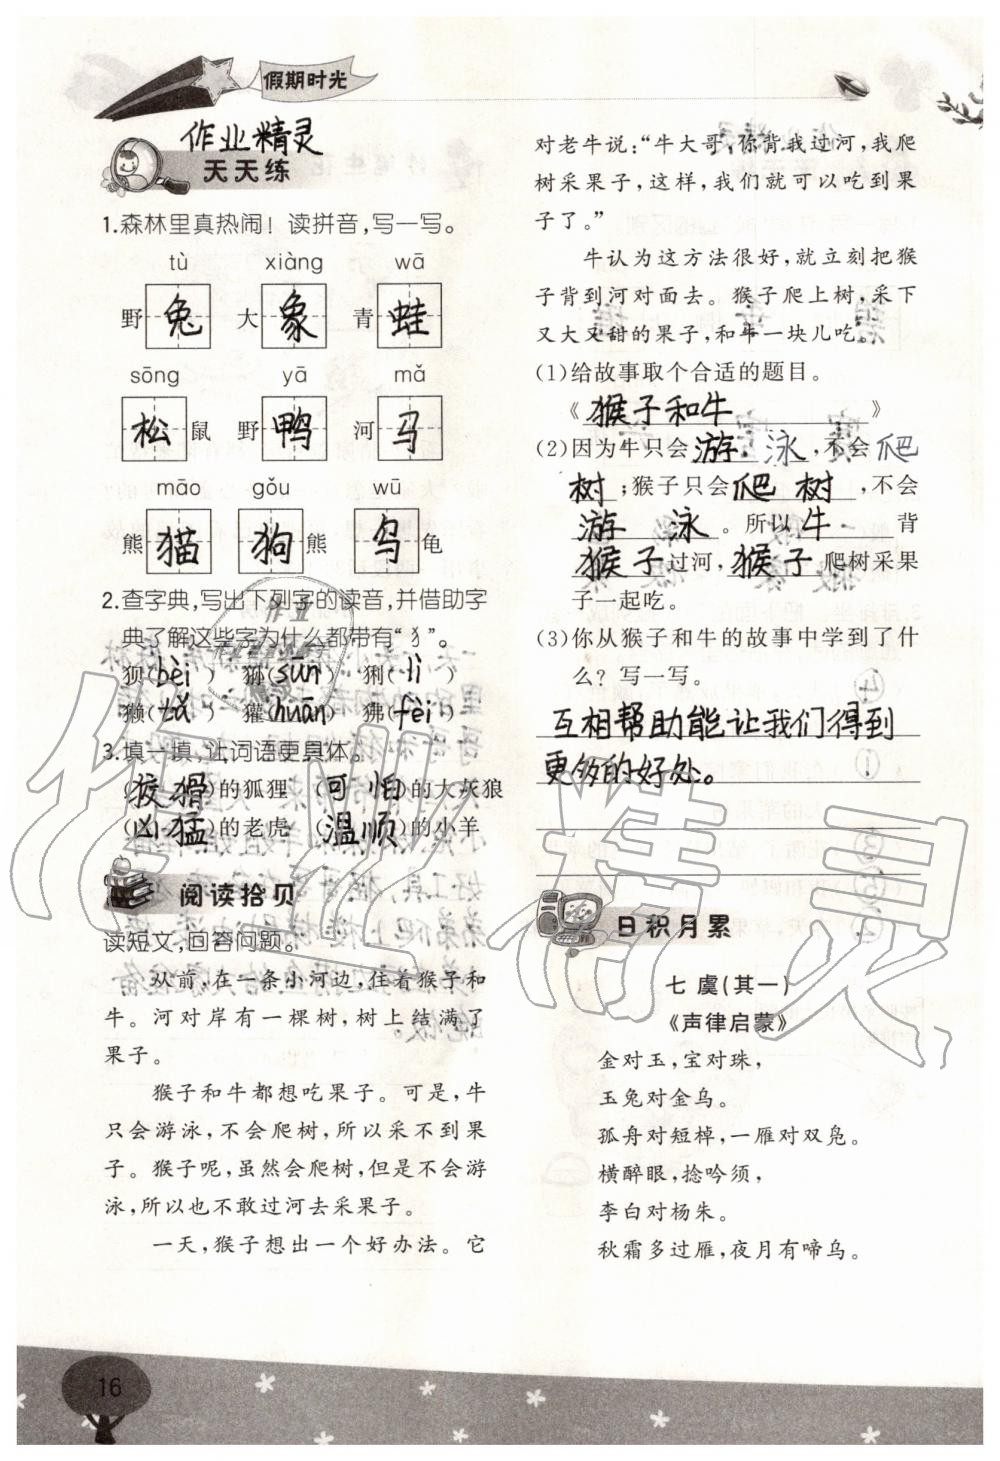 假期时光
作业精灵
天天练
1.森林里真热闹！读拼音，写一写。
tù xiàng wā
野兔 大象 青蛙
sōng yā mǎ
松鼠 野鸭 河马
māo gǒu wū
熊猫 狗熊 乌龟
2.查字典，写出下列字的读音，并借助字
典了解这些字为什么都带有“犭”。
狈(bèi) 狲(sūn) 猁(lì)
獭(tǎ) 獾(huān) 狒(fèi)
3.填一填，让词语更具体。
(狡猾)的狐狸 (可怕)的大灰狼
(凶猛)的老虎 (温顺)的小羊
阅读拾贝
读短文，回答问题。
从前，在一条小河边，住着猴子和
牛。河对岸有一棵树，树上结满了
果子。
猴子和牛都想吃果子。可是，牛
只会游泳，不会爬树，所以采不到果
子。猴子呢，虽然会爬树，但不会游
泳，所以也不敢过河去采果子。
一天，猴子想出一个好办法。它
对老牛说：“牛大哥，你背我过河，我爬
树采果子，这样，我们就可以吃到果
子了。”
牛认为这方法很好，就立刻把猴
子背到河对面去。猴子爬上树，采下
又大又甜的果子，和牛一块儿吃。
(1)给故事取个合适的题目。
《猴子和牛》
(2)因为牛只会游泳，不会爬
树；猴子只会爬树，不会
游泳。所以牛背
猴子过河，猴子爬树采果
子一起吃。
(3)你从猴子和牛的故事中学到了什
么？写一写。
互相帮助能让我们得到
更多的好处。
日积月累
七虞(其一)
《声律启蒙》
金对玉，宝对珠，
玉兔对金乌。
孤舟对短棹，一雁对双凫。
横醉眼，捻吟须，
李白对杨朱。
秋霜多过雁，夜月有啼乌。
16
作业精灵